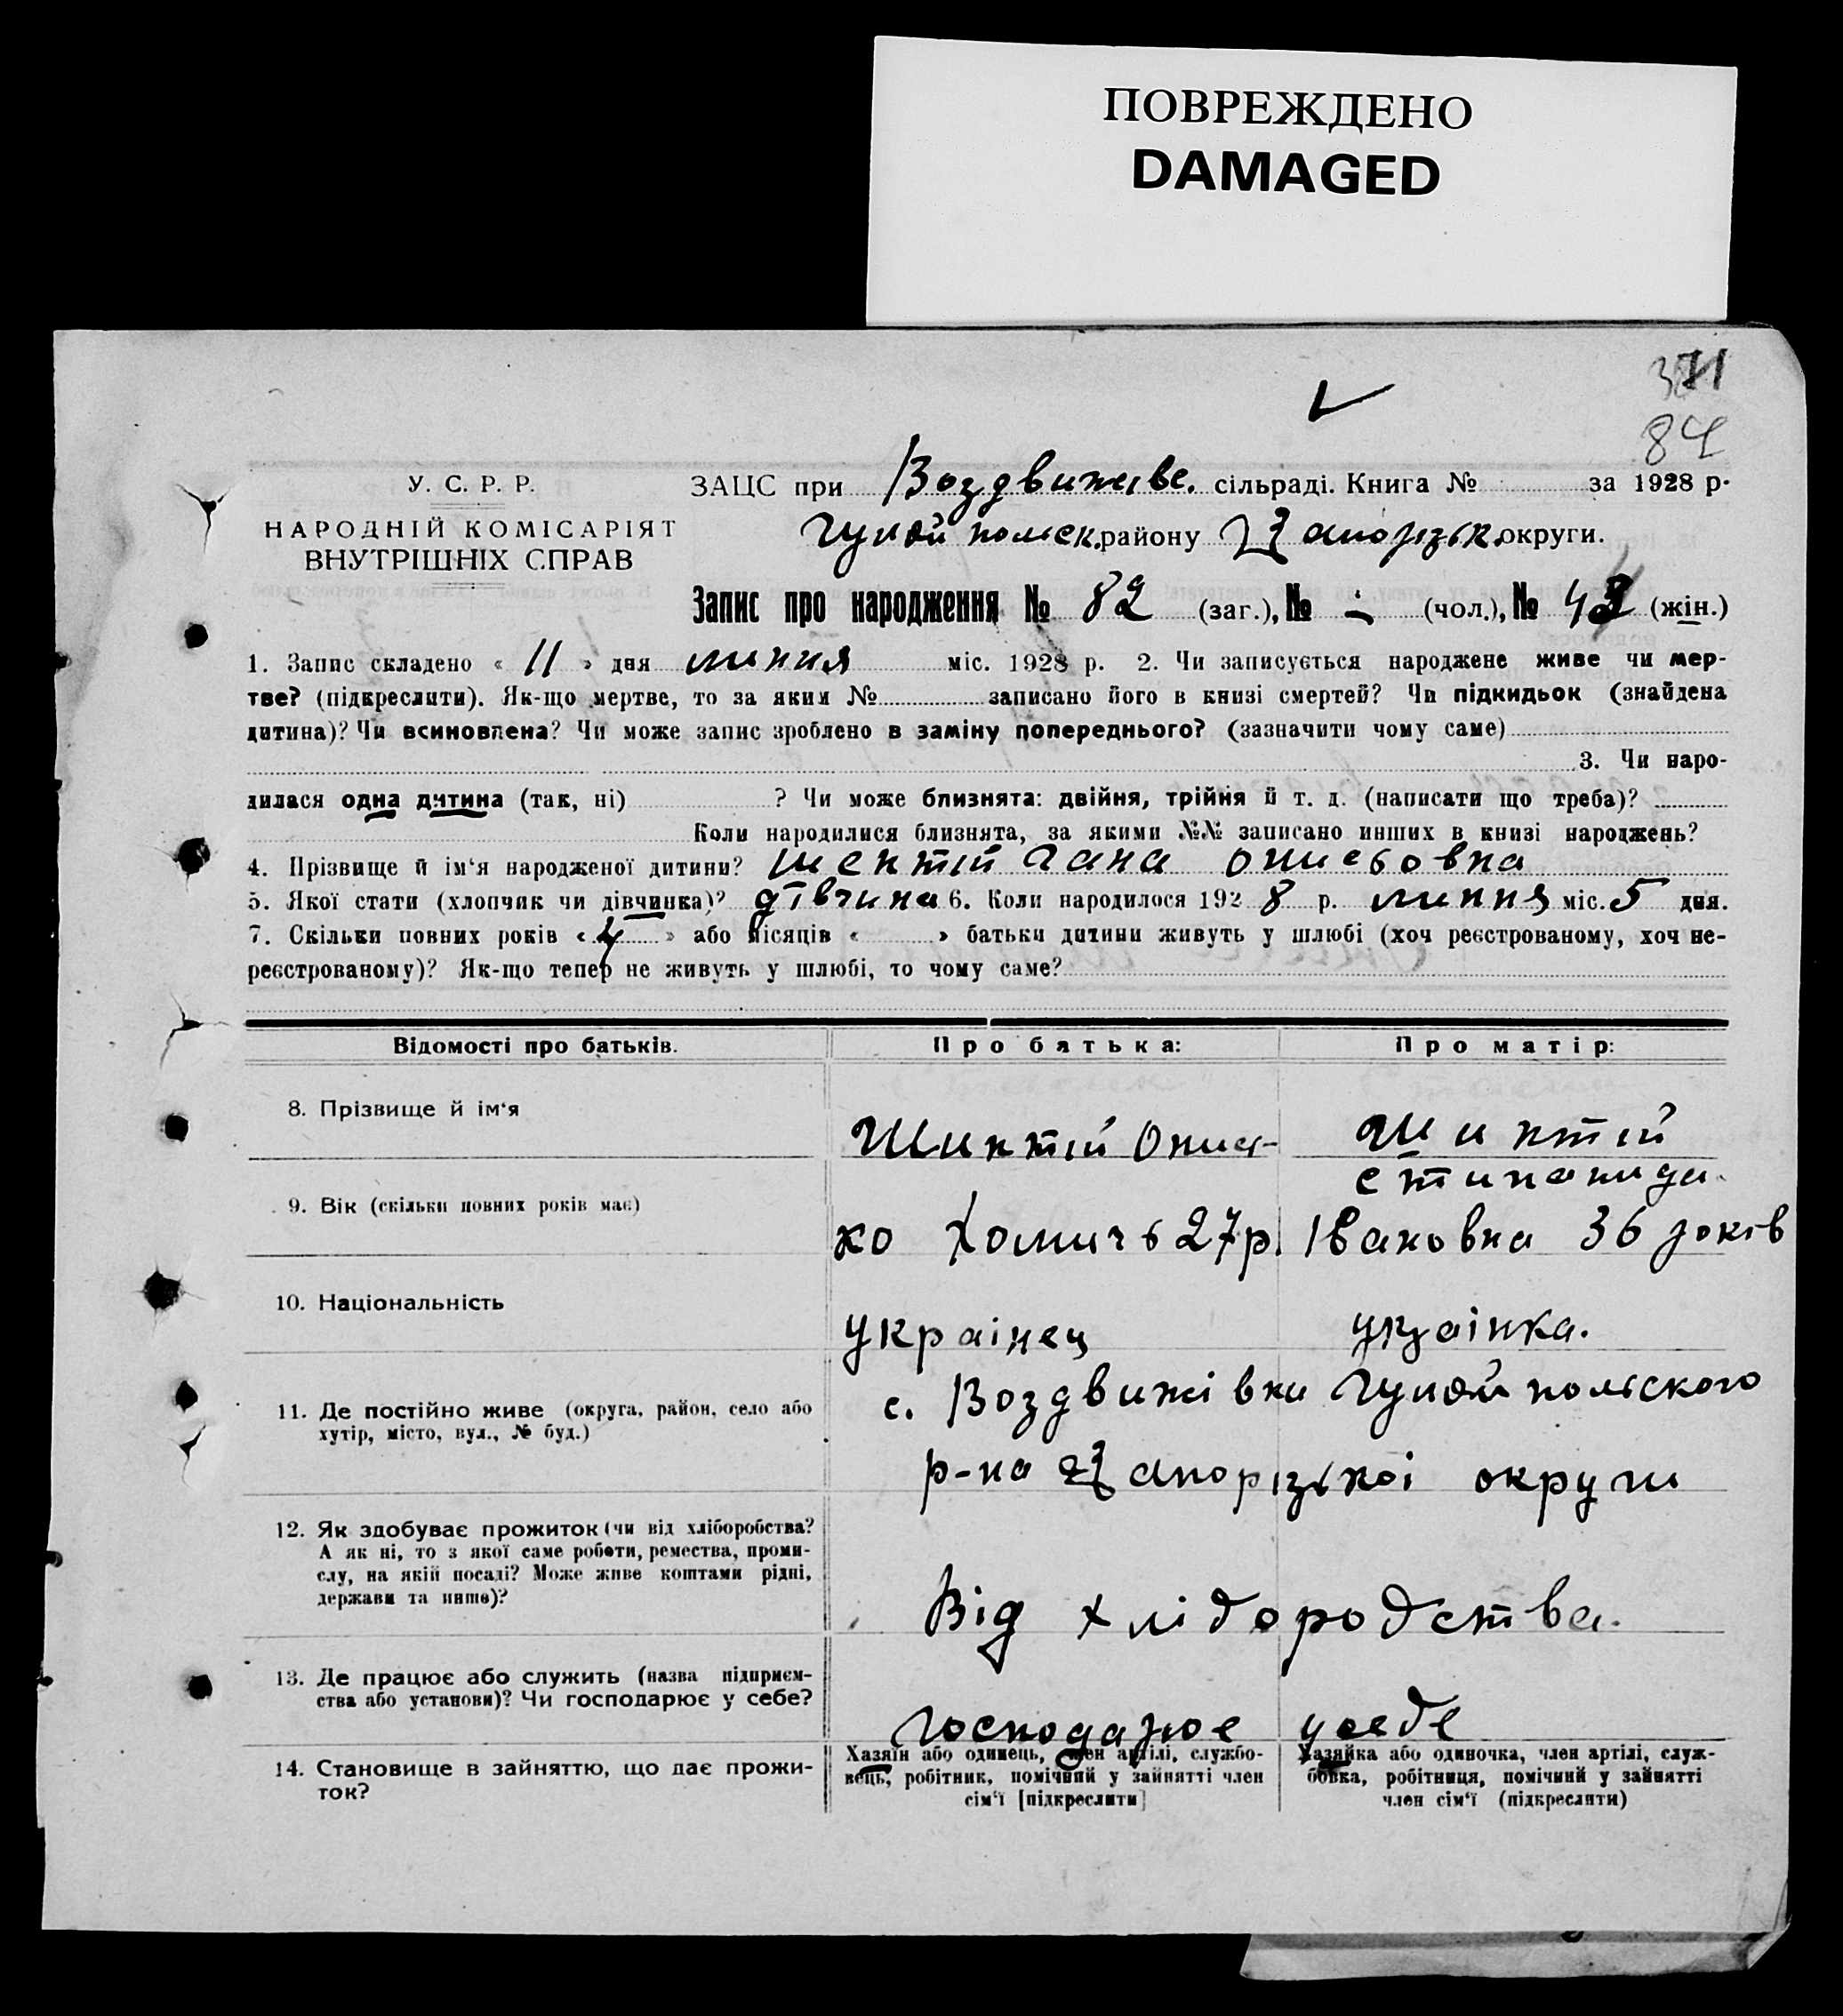 ПОВРЕЖДЕНО
DAMAGED
371
84
У. С. Р. Р.
НАРОДНІЙ КОМІСАРІЯТ
ВНУТРІШНІХ СПРАВ
ЗАЦС при Воздвижівс. сільраді. Книга № за 1928 р.
Гуляй польск. району Запорізьк. округи.
Запис про народження № 82 (заг.), № - (чол.), № 43 (жін.)
1. Запис складено « 11 » дня липня міс. 1928 р. 2. Чи записується народжене живе чи мер-
тве? (підкреслити). Як-що мертве, то за яким № записано його в книзі смертей? Чи підкидьок (знайдена
дитина)? Чи всиновлена? Чи може запис зроблено в заміну попереднього? (зазначити чому саме)
3. Чи наро-
дилася одна дитина (так, ні) ? Чи може близнята: двійня, трійня й т. д. (написати що треба)?
Коли народилися близнята, за якими №№ записано инших в книзі народжень?
4. Прізвище й ім'я народженої дитини? Гана
5. Якої стати (хлопчик чи дівчинка)? дівчина 6. Коли народилося 1928 р. липня міс. 5 дня.
7. Скільки повних років « 4 » або місяців « » батьки дитини живуть у шлюбі (хоч реєстрованому, хоч не-
реєстрованому)? Як-що тепер не живуть у шлюбі, то чому саме?
Відомості про батьків.
Про батька:
Про матір:
8. Прізвище й ім'я
Шиптій Онис-
Шиптій
9. Вік (скільки повних років має)
ко Хомичь 27 р.
Івановна 36 років
10. Національність
украінец
украінка.
11. Де постійно живе (округа, район, село або
хутір, місто, вул., № буд.)
с. Воздвижівки Гуляйпольского
р-на Запорізькоі округи
12. Як здобуває прожиток (чи від хліборобства?
А як ні, то з якої саме роботи, ремества, проми-
слу, на якій посаді? Може живе коштами рідні,
держави та инше)?
Від хліборобства.
13. Де працює або служить (назва підприєм-
ства або установи)? Чи господарює у себе?
Господарює усебе
14. Становище в зайняттю, що дає прожи-
ток?
Хазяїн або одинець, член артілі, службо-
вець, робітник, помічний у зайнятті член
сім'ї [підкреслити]
Хазяйка або одиночка, член артілі, служ-
бовка, робітниця, помічний у зайнятті
член сім'ї (підкреслити)